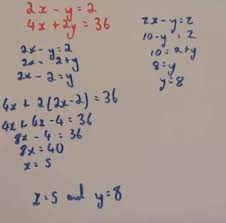 2x - y = 2
4x + 2y = 36
2x - y = 2
2x = 2 + y
2x - 2 = y
4x + 2(2x-2) = 36
4x + 4x - 4 = 36
8x - 4 = 36
8x = 40
x = 5
2x - y = 2
10 - y = 2
10 = 2 + y
8 = y
y = 8
x = 5 and y = 8